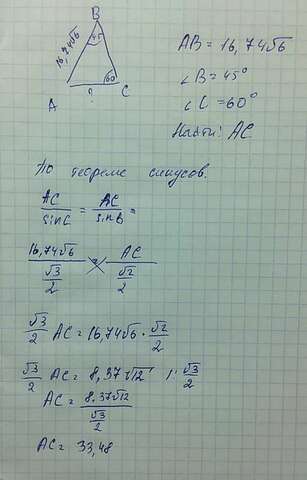 B
16,74√6
45
60
A
?
C
AB = 16,74√6
∠B = 45°
∠C = 60°
Найти: AC
По теореме синусов.
AC/sinC = AC/sinB =
16,74√6/(√3/2) = AC/(√2/2)
√3/2 AC = 16,74√6 · √2/2
√3/2 AC = 8,37√12 | : √3/2
AC = 8.37√12/(√3/2)
AC = 33,48